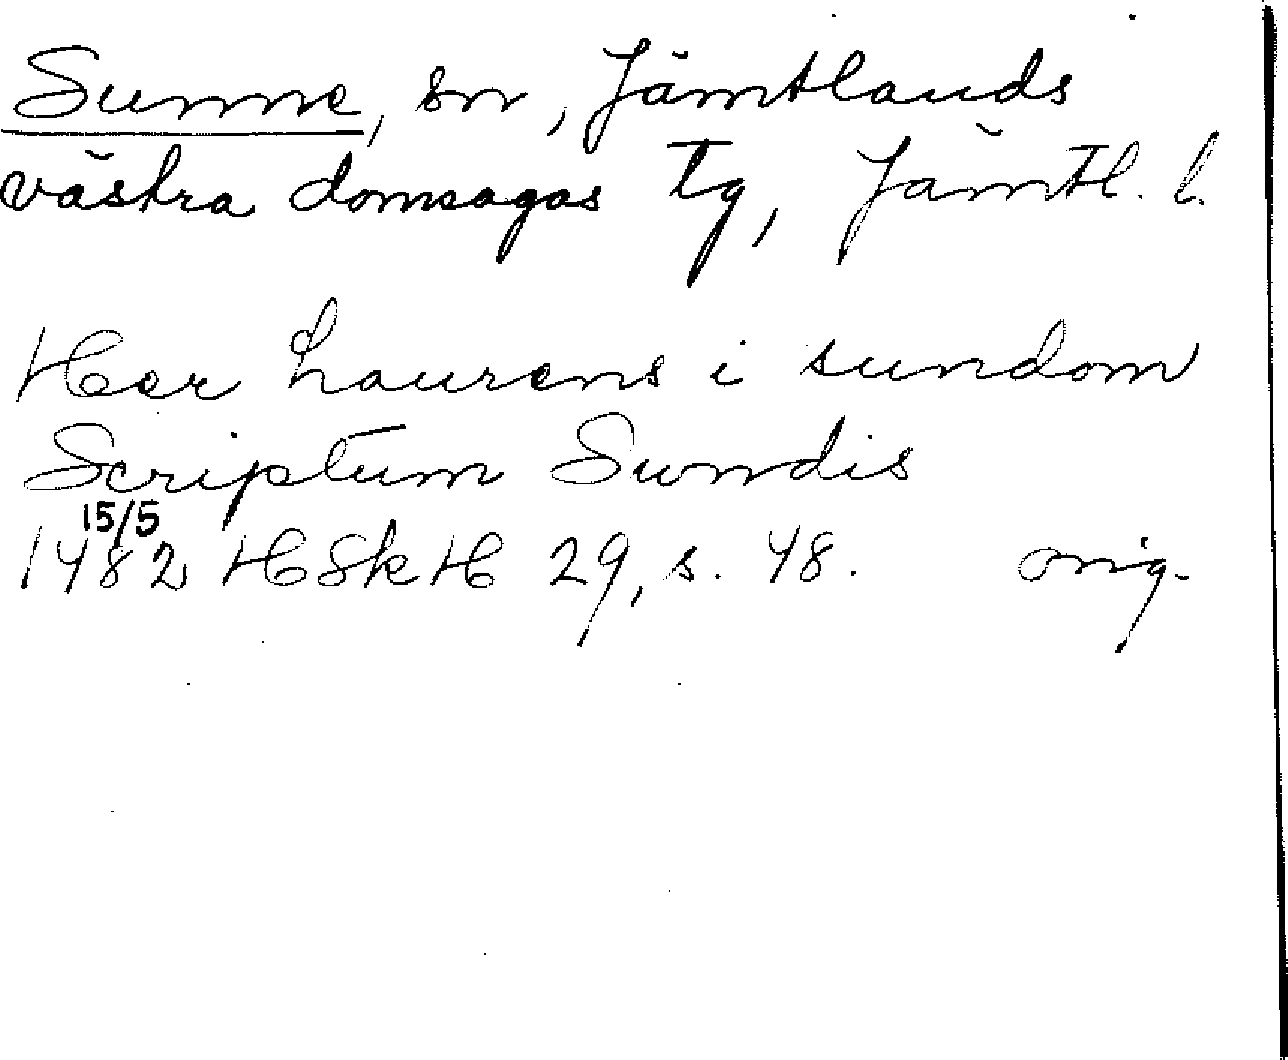 Sunne, sn, Jämtlands
västra domsagas tg, Jämtl. l.
Her Laurens i sundom
Scriptum Sundis
15/5
1482 HSkH 29, s. 48. orig.